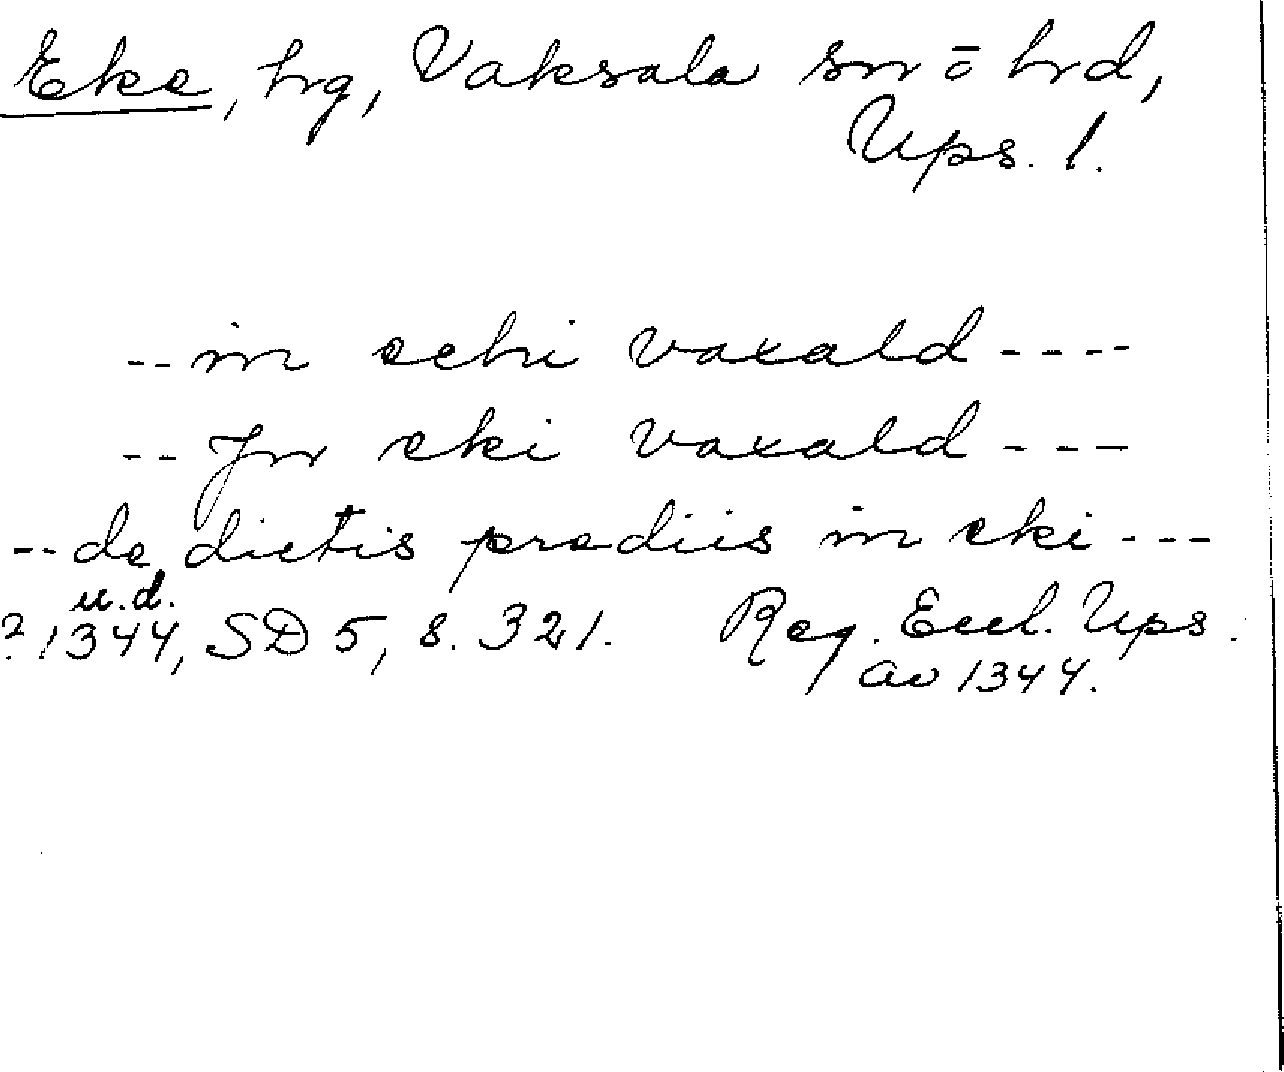 Eke, hg, Vaksala sn o hd,
Ups. l.
-- in echi vaxald ----
-- Jn eki vaxald ---
-- de dictis prediis in eki ---
u.d.
? 1344, SD 5, s. 321. Reg. Eccl. Ups.
av 1344.